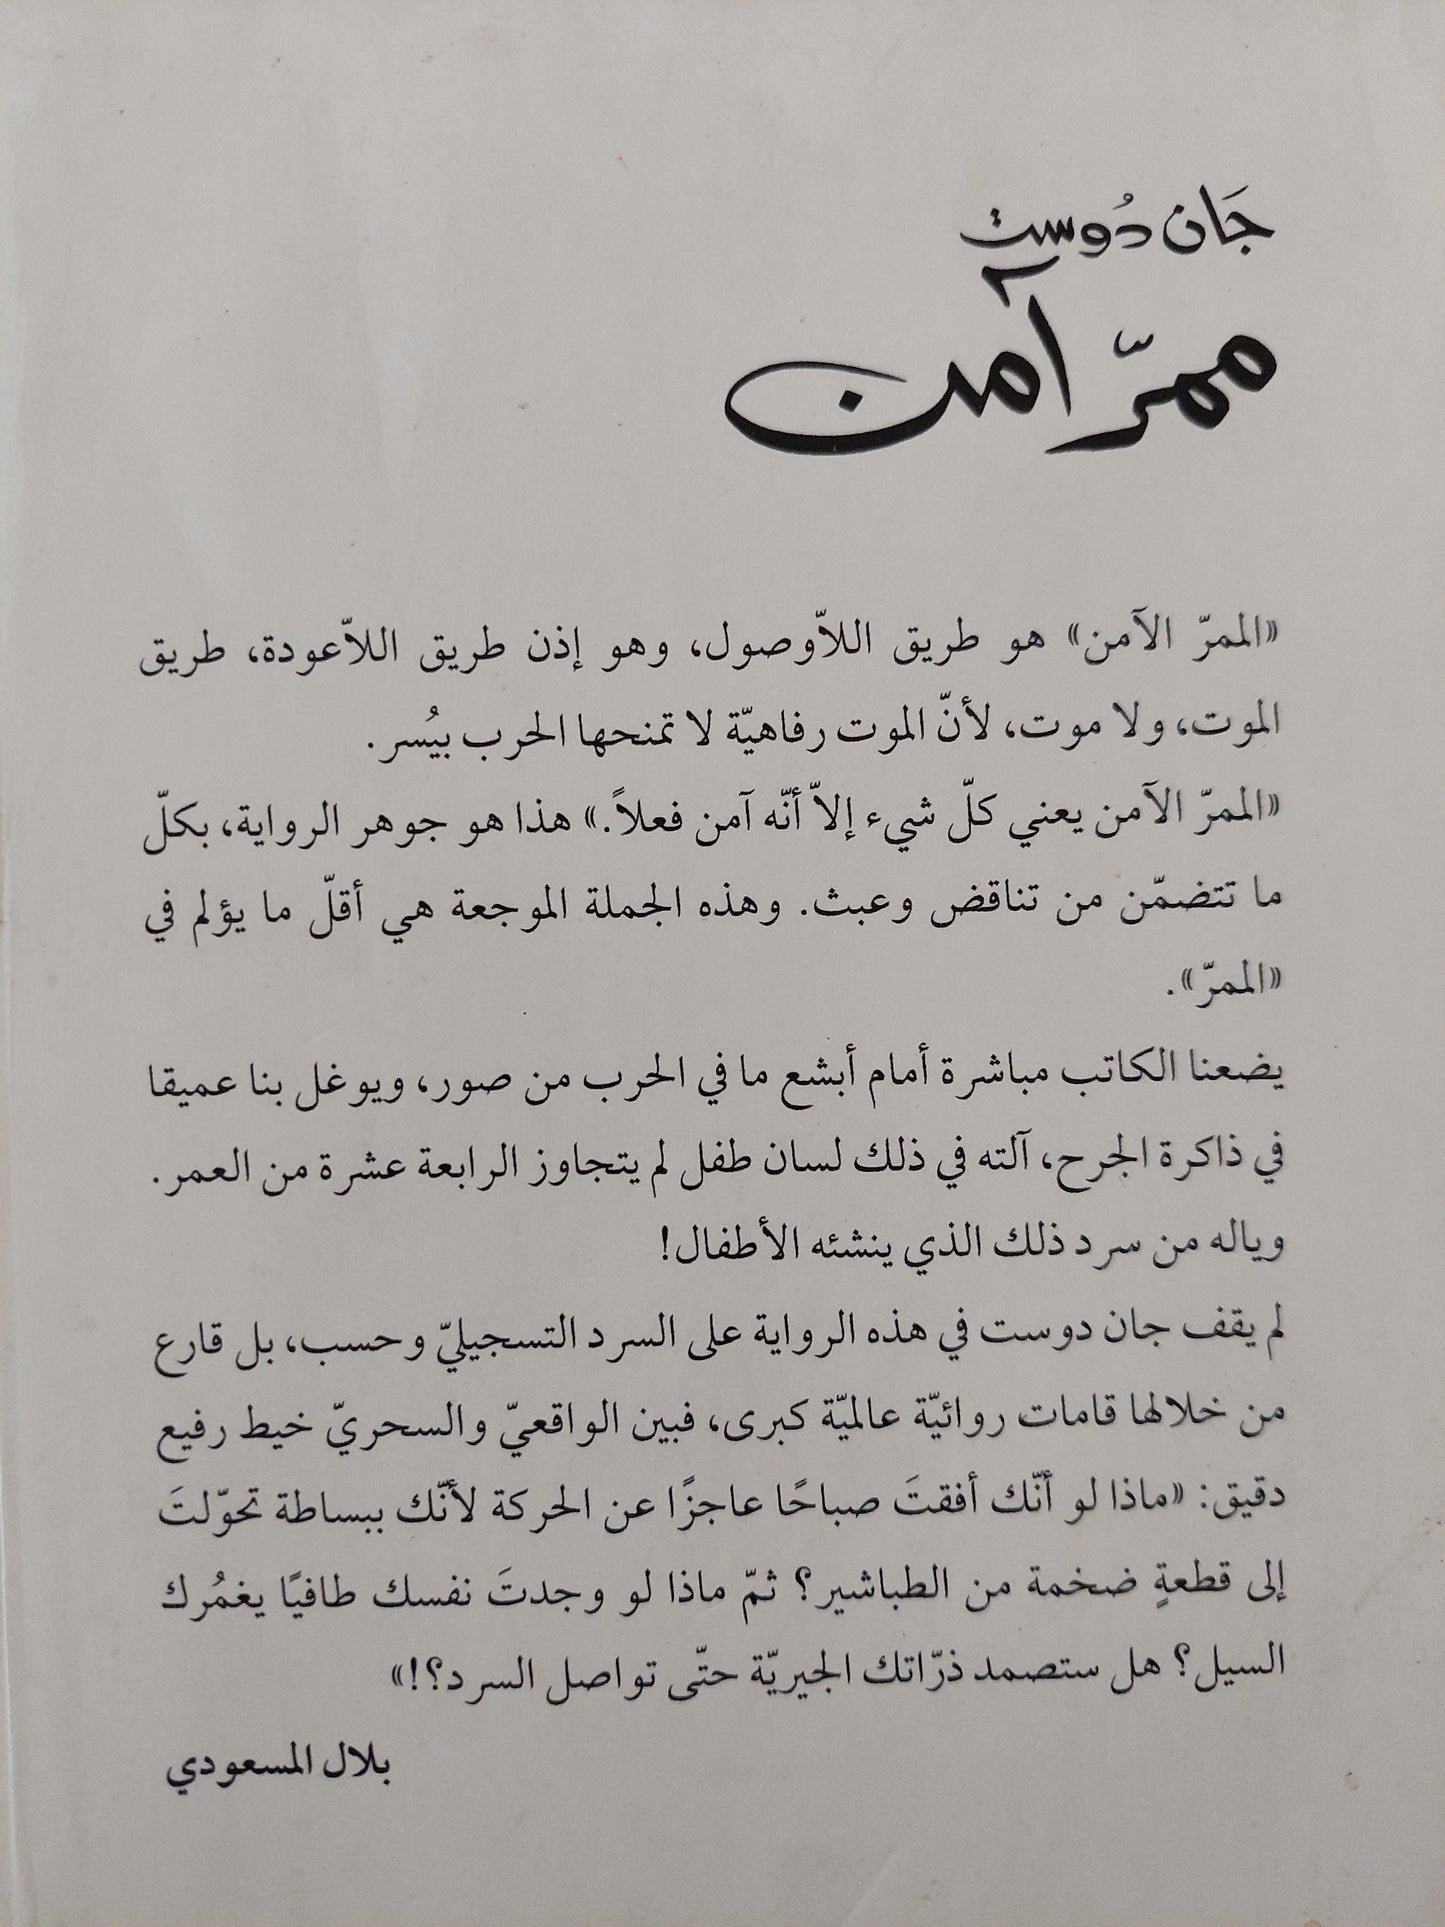 جَان دُوست
ممرّ آمن
«الممرّ الآمن» هو طريق اللاّوصول، وهو إذن طريق اللاّعودة، طريق
الموت، ولا موت، لأنّ الموت رفاهيّة لا تمنحها الحرب بيُسر.
«الممرّ الآمن يعني كلّ شيء إلاّ أنّه آمن فعلاً.» هذا هو جوهر الرواية، بكلّ
ما تتضمّن من تناقض وعبث. وهذه الجملة الموجعة هي أقلّ ما يؤلم في
«الممرّ».
يضعنا الكاتب مباشرة أمام أبشع ما في الحرب من صور، ويوغل بنا عميقا
في ذاكرة الجرح، آلته في ذلك لسان طفل لم يتجاوز الرابعة عشرة من العمر.
وياله من سرد ذلك الذي ينشئه الأطفال!
لم يقف جان دوست في هذه الرواية على السرد التسجيليّ وحسب، بل قارع
من خلالها قامات روائيّة عالميّة كبرى، فبين الواقعيّ والسحريّ خيط رفيع
دقيق: «ماذا لو أنّك أفقتَ صباحًا عاجزًا عن الحركة لأنّك ببساطة تحوّلتَ
إلى قطعةٍ ضخمة من الطباشير؟ ثمّ ماذا لو وجدتَ نفسك طافيًا يغمُرك
السيل؟ هل ستصمد ذرّاتك الجيريّة حتّى تواصل السرد؟!»
بلال المسعودي